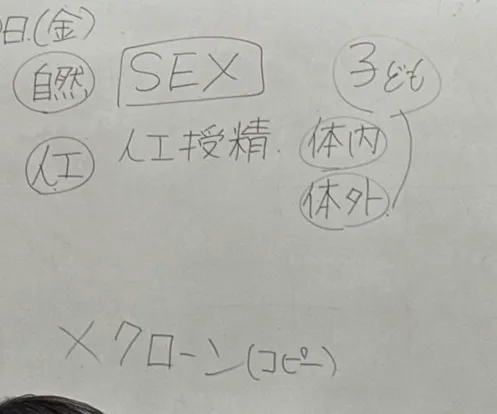 日.(金)
自然 SEX 子ども
人工 人工授精. 体内
体外
×クローン(コピー)